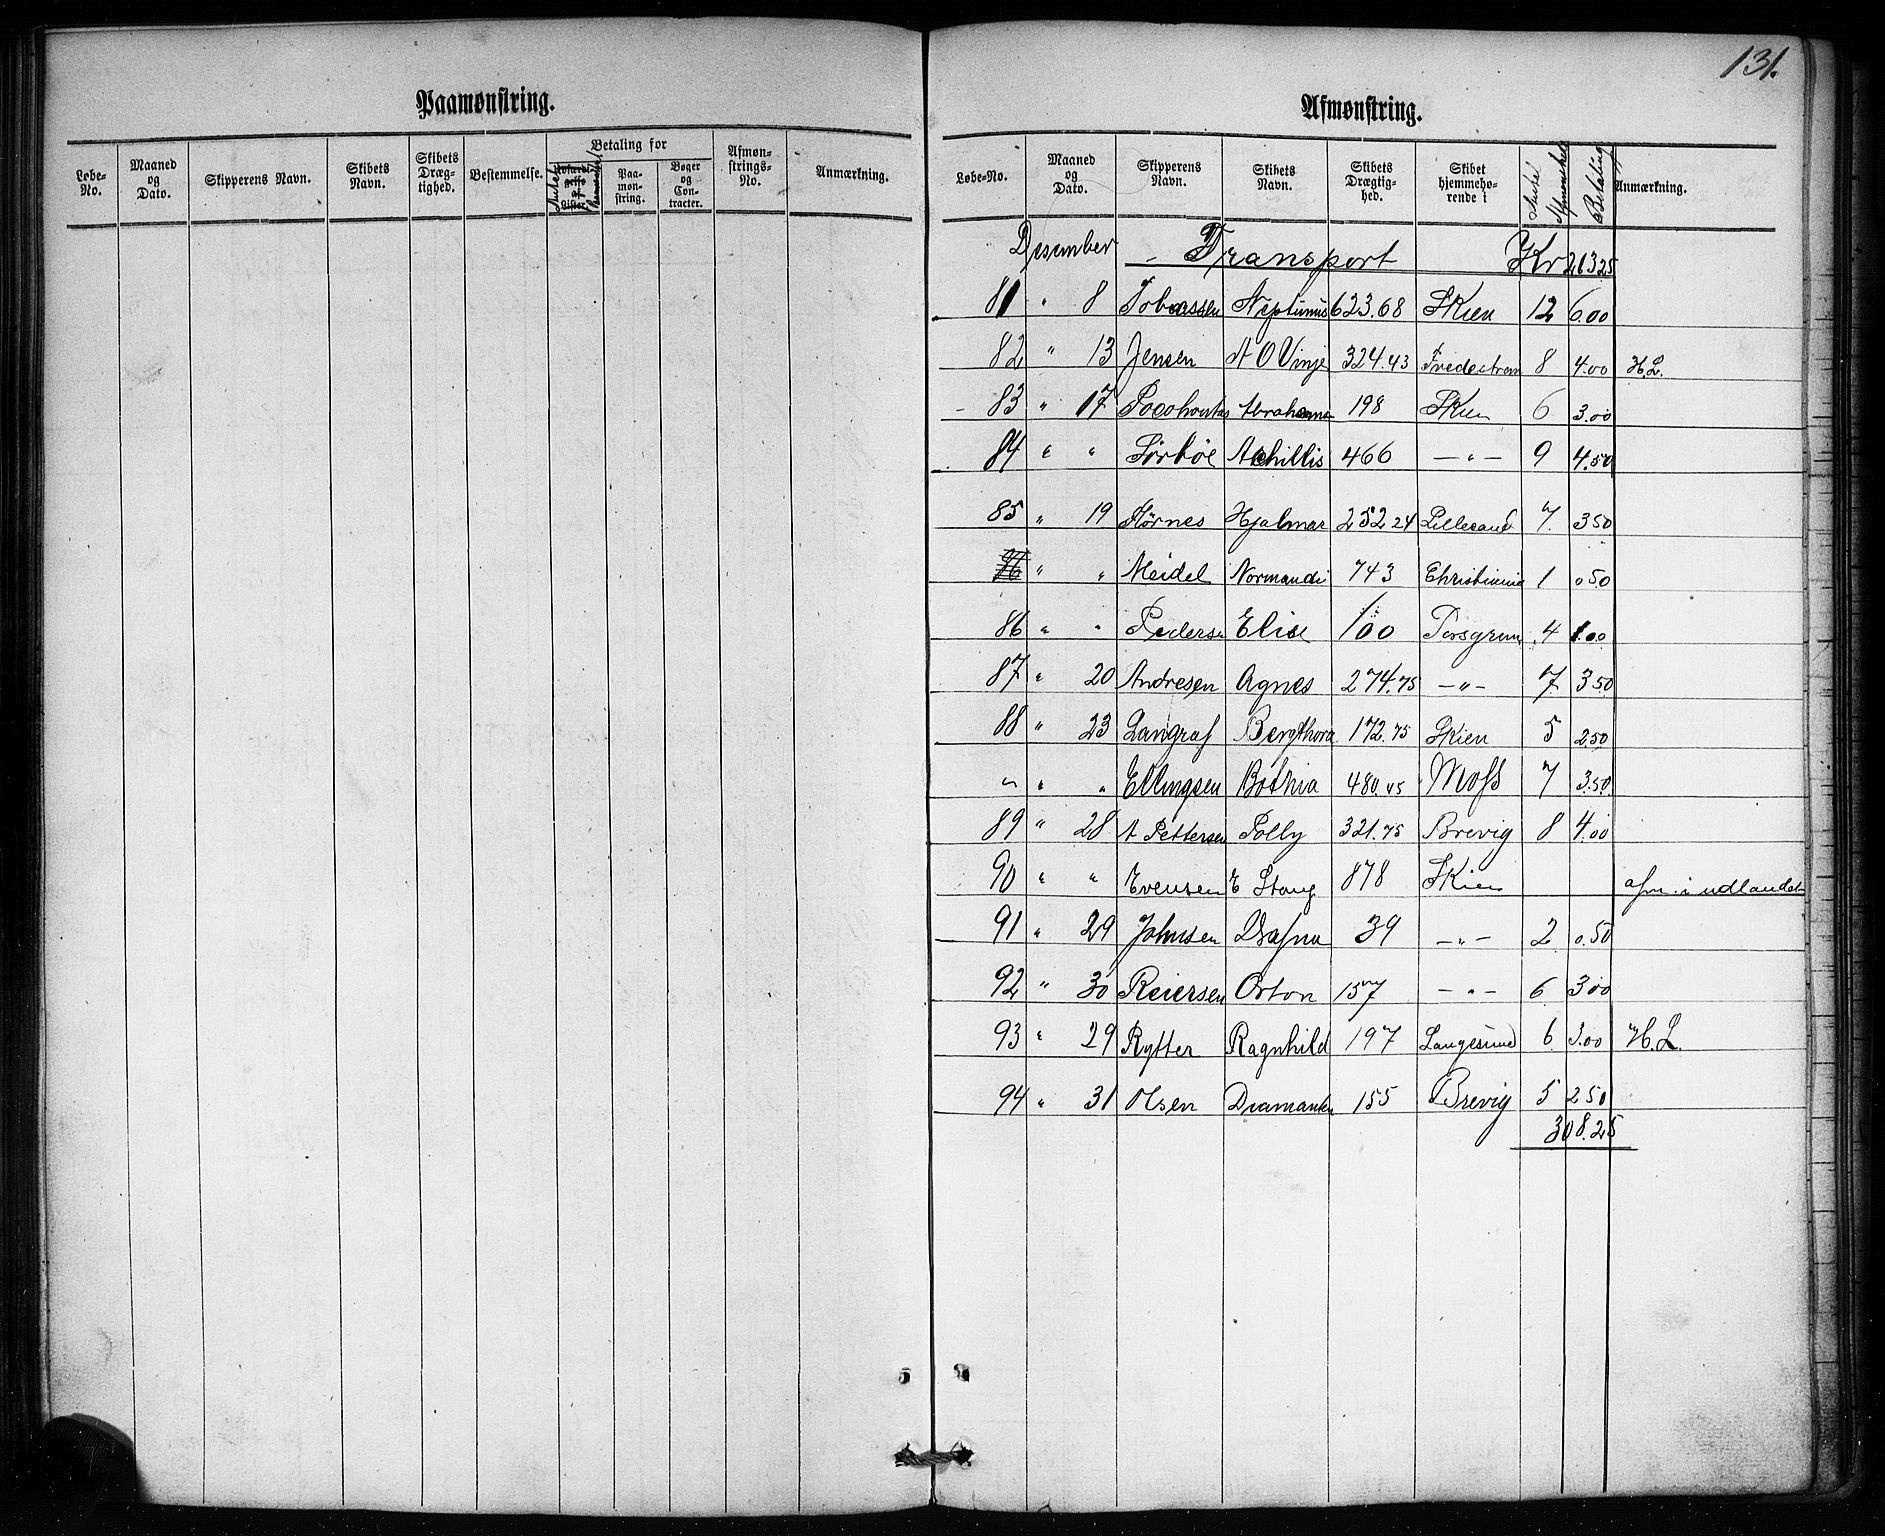 131.
Paamønstring.
Løbe-No. Maaned og Dato. Skipperens Navn. Skibets Navn. Skibets Dræg-tighed. Bestemmelse. Betaling for Paa-møn-string. Bøger og Con-tracter. Afmøn-strings-No. Anmærkning.
Afmønstring.
Løbe-No. Maaned og Dato. Skipperens Navn. Skibets Navn. Skibets Drægtig-hed. Skibet hjemmehø-rende i Antal Afmønstrede Betaling Anmærkning.
Desember - Transport Kr 263.25
81 " 8 Tobiassen Neptunus 623.68 Skien 12 6.00
82 " 13 Jensen A O Vinje 324.43 Fredestran 8 4.00 H.L.
83 " 17 Pocohontas Abrahams 198 Skien 6 3.00
84 " " Sørbøe Achillis 466 -"- 9 4.50
85 " 19 Hørnes Hjalmar 252.24 Lillesand 7. 350
" " Meidel Normandi 743 Christiania 1 0.50
86 " " Pedersen Elise 100 Porsgrun 4 1.00
87 " 20 Andresen Agnes 274.75 -"- 7 350
88 " 23 Langraf Bergthora 172.75 Skien 5 250
" " " Ellingsen Bothia 480.45 Moss 7 3.50
89 " 28 A Pettersen Polly 321.75 Brevig 8 4.00
90 " " Evensen E Stang 878 Skien afm. i udlandet
91 " 29 Johnsen Dafna 39 -"- 2 0.50
92 " 30 Reiersen Orton 157 -"- 6 300
93 " 29 Rytter Ragnhild 197 Langesund 6. 3.00 H.L.
94 " 31 Olsen Diamanten 155 Brevig 5 250
308.25